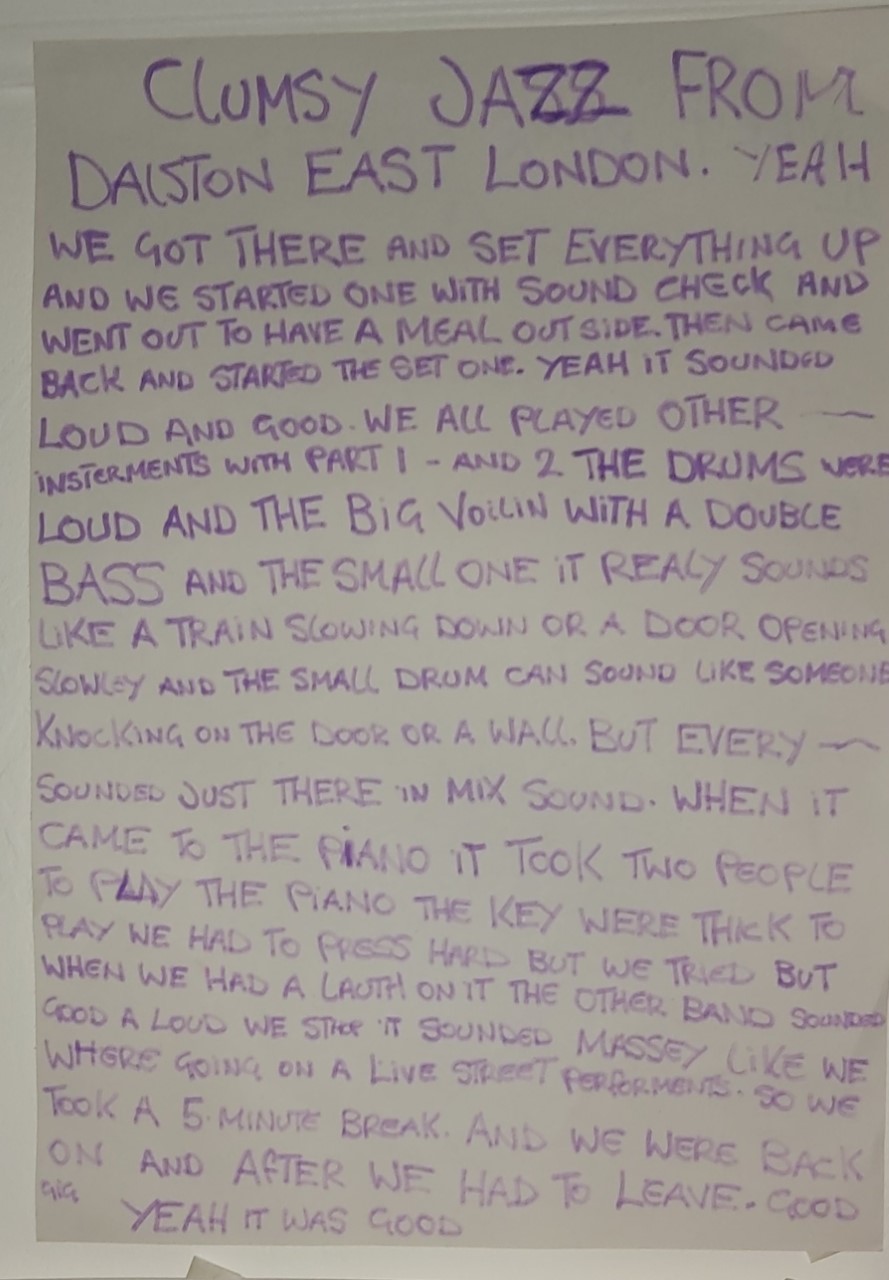 CLUMSY JAZZ FROM
DALSTON EAST LONDON. YEAH
WE GOT THERE AND SET EVERYTHING UP
AND WE STARTED ONE WITH SOUND CHECK AND
WENT OUT TO HAVE A MEAL OUTSIDE. THEN CAME
BACK AND STARTED THE SET ONE. YEAH IT SOUNDED
LOUD AND GOOD. WE ALL PLAYED OTHER —
INSTERMENTS WITH PART 1 - AND 2 THE DRUMS WERE
LOUD AND THE BIG VOILIN WITH A DOUBLE
BASS AND THE SMALL ONE IT REALY SOUNDS
LIKE A TRAIN SLOWING DOWN OR A DOOR OPENING
SLOWLEY AND THE SMALL DRUM CAN SOUND LIKE SOMEONE
KNOCKING ON THE DOOR OR A WALL. BUT EVERY —
SOUNDED JUST THERE IN MIX SOUND. WHEN IT
CAME TO THE PIANO IT TOOK TWO PEOPLE
TO PLAY THE PIANO THE KEY WERE THICK TO
PLAY WE HAD TO PRESS HARD BUT WE TRIED BUT
WHEN WE HAD A LAUTH ON IT THE OTHER BAND SOUNDED
GOOD A LOUD WE STOP IT SOUNDED MASSEY LIKE WE
WHERE GOING ON A LIVE STREET PERFORMENTS. SO WE
TOOK A 5.MINUTE BREAK. AND WE WERE BACK
ON AND AFTER WE HAD TO LEAVE. GOOD
GIG YEAH IT WAS GOOD